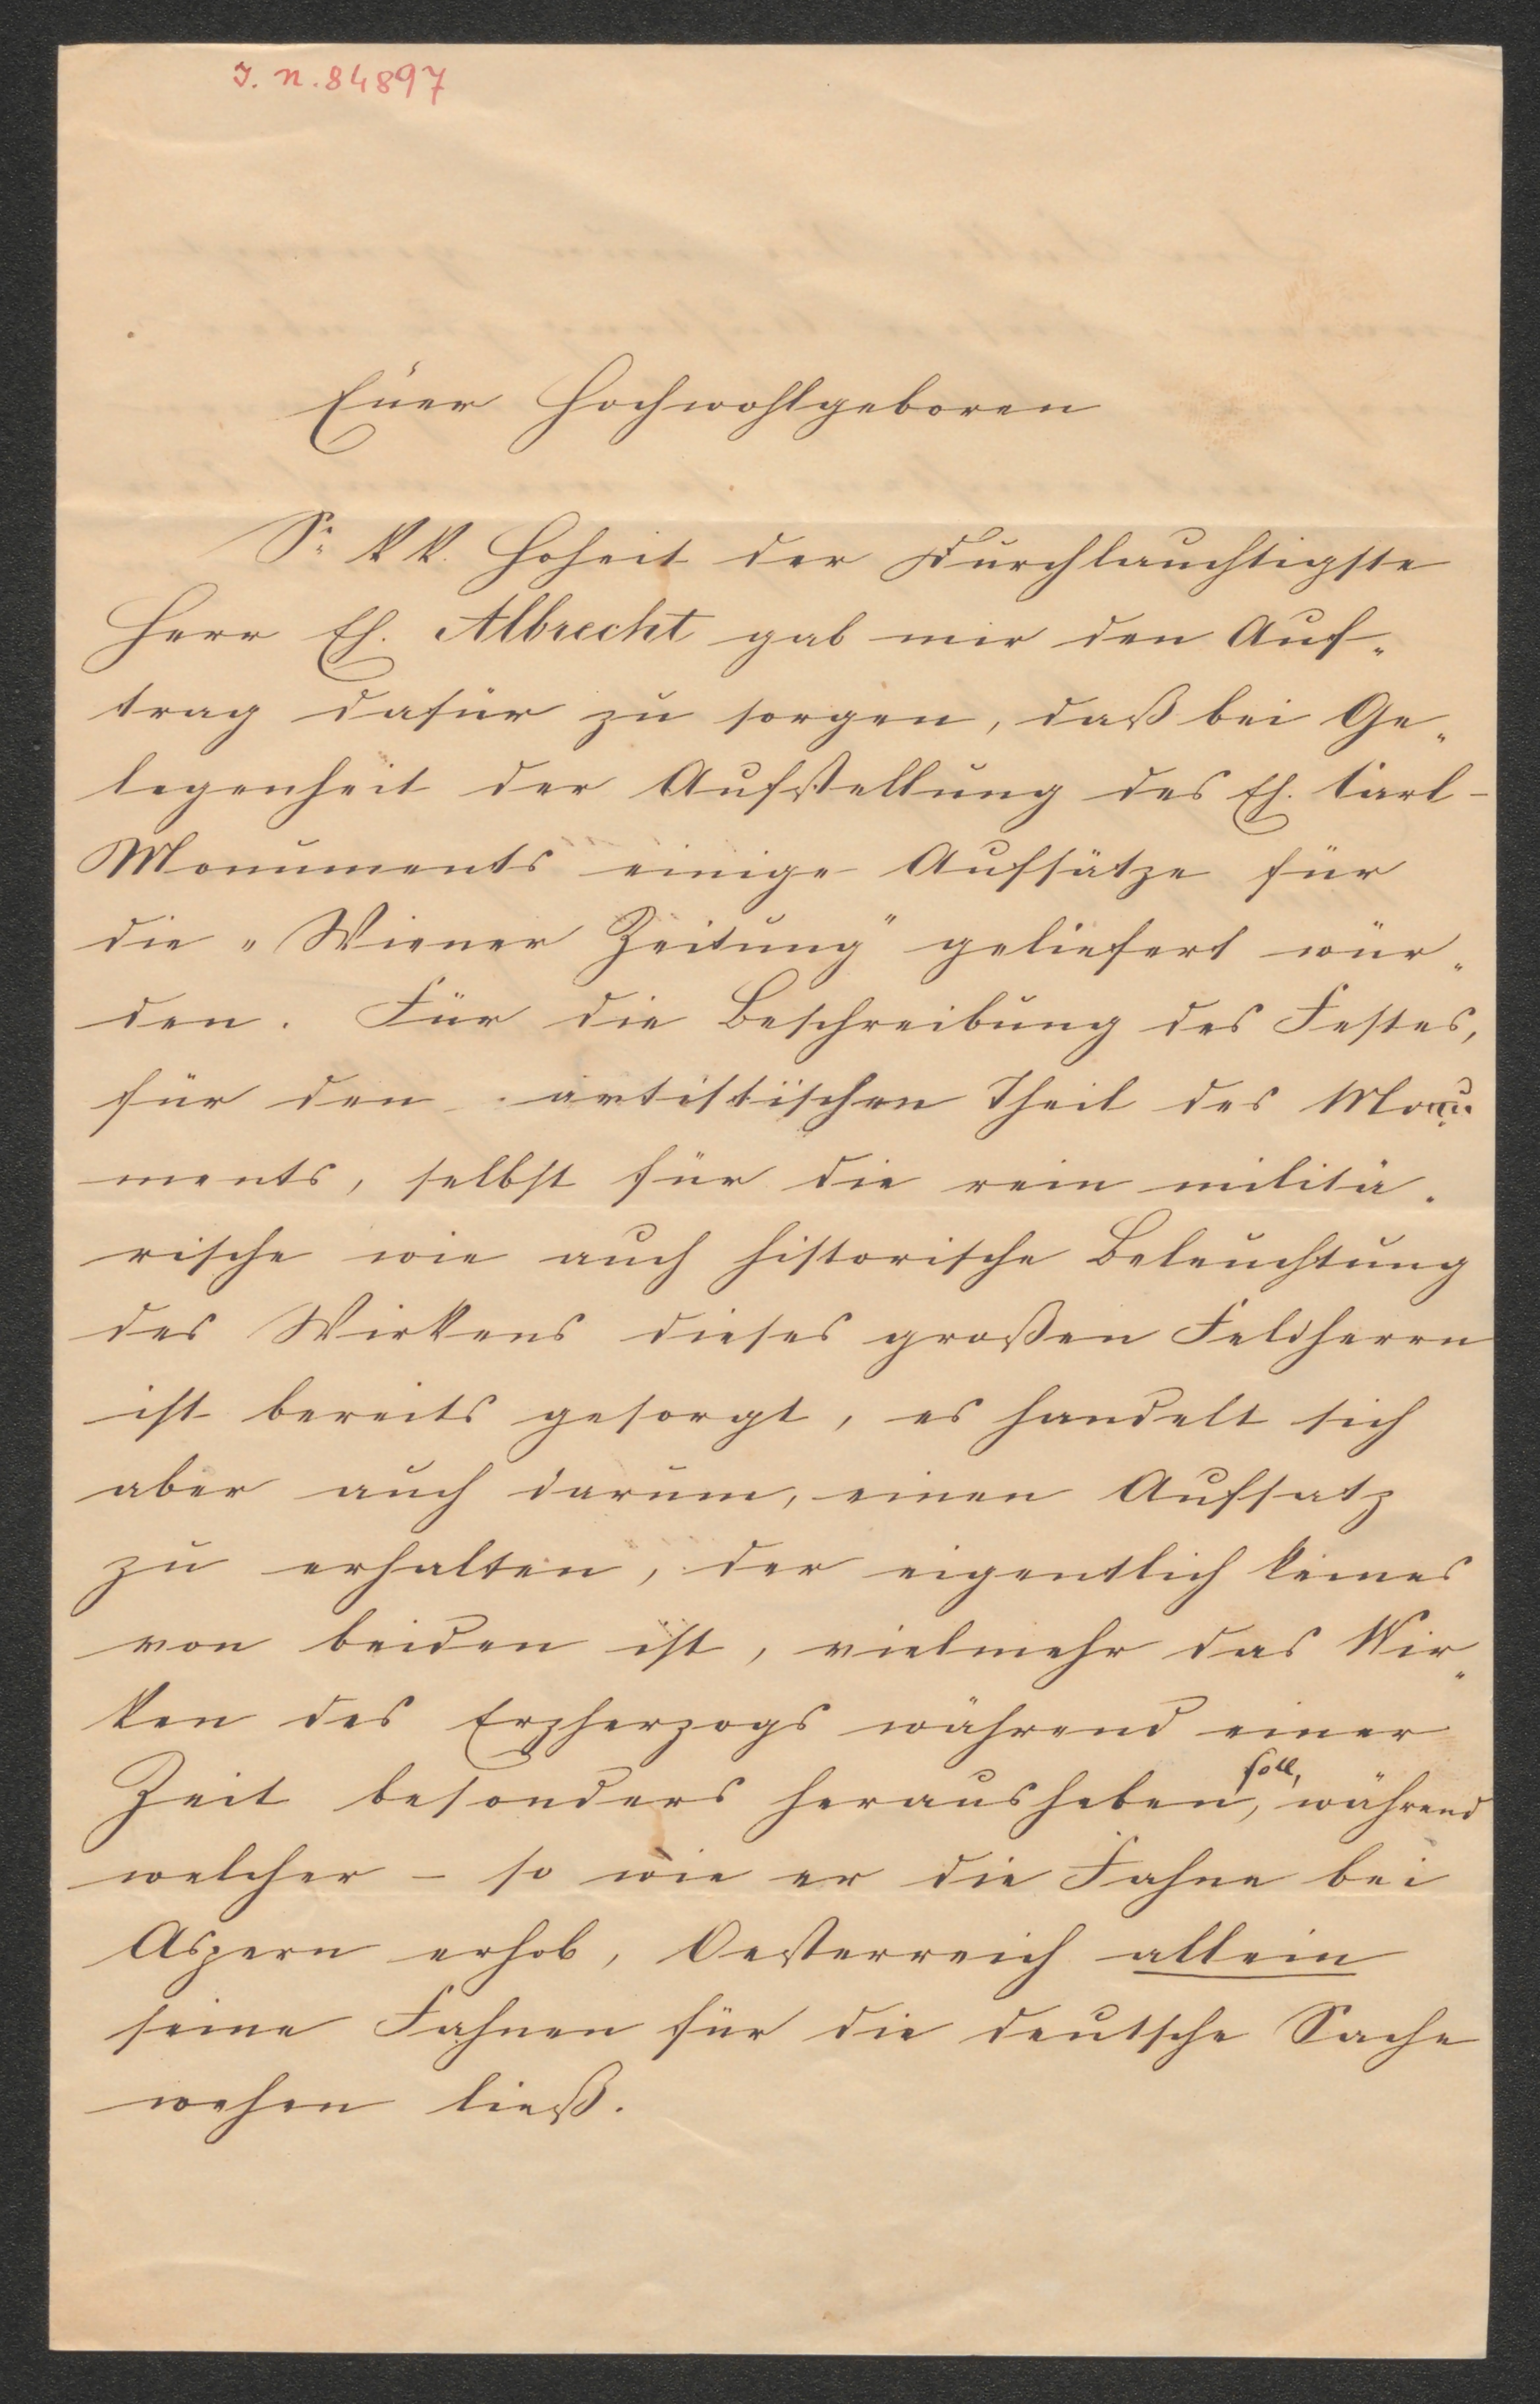 I. N. 84897
Euer Hochwohlgeboren
Sr. kk. Hoheit der Durchlauchtigste
Herr Eh. Albrecht gab mir den Auf-
trag dafür zu sorgen, daß bei Ge-
legenheit der Aufstellung des Eh. Carl-
Monuments einige Aufsätze für
die „Wiener Zeitung" geliefert wür-
den. Für die Beschreibung des Festes,
für den artistischen Theil des Monu-
ments, selbst für die rein militä-
rische wie auch historische Beleuchtung
des Wirkens dieses großen Feldherrn
ist bereits gesorgt, es handelt sich
aber auch darum, einen Aufsatz
zu erhalten, der eigentlich keines
von beiden ist, vielmehr das Wir-
ken des Erzherzogs während einer
Zeit besonders herausheben soll, während
welcher – so wie er die Fahne bei
Aspern erhob, Oesterreich allein
seine Fahnen für die deutsche Sache
wehen ließ.